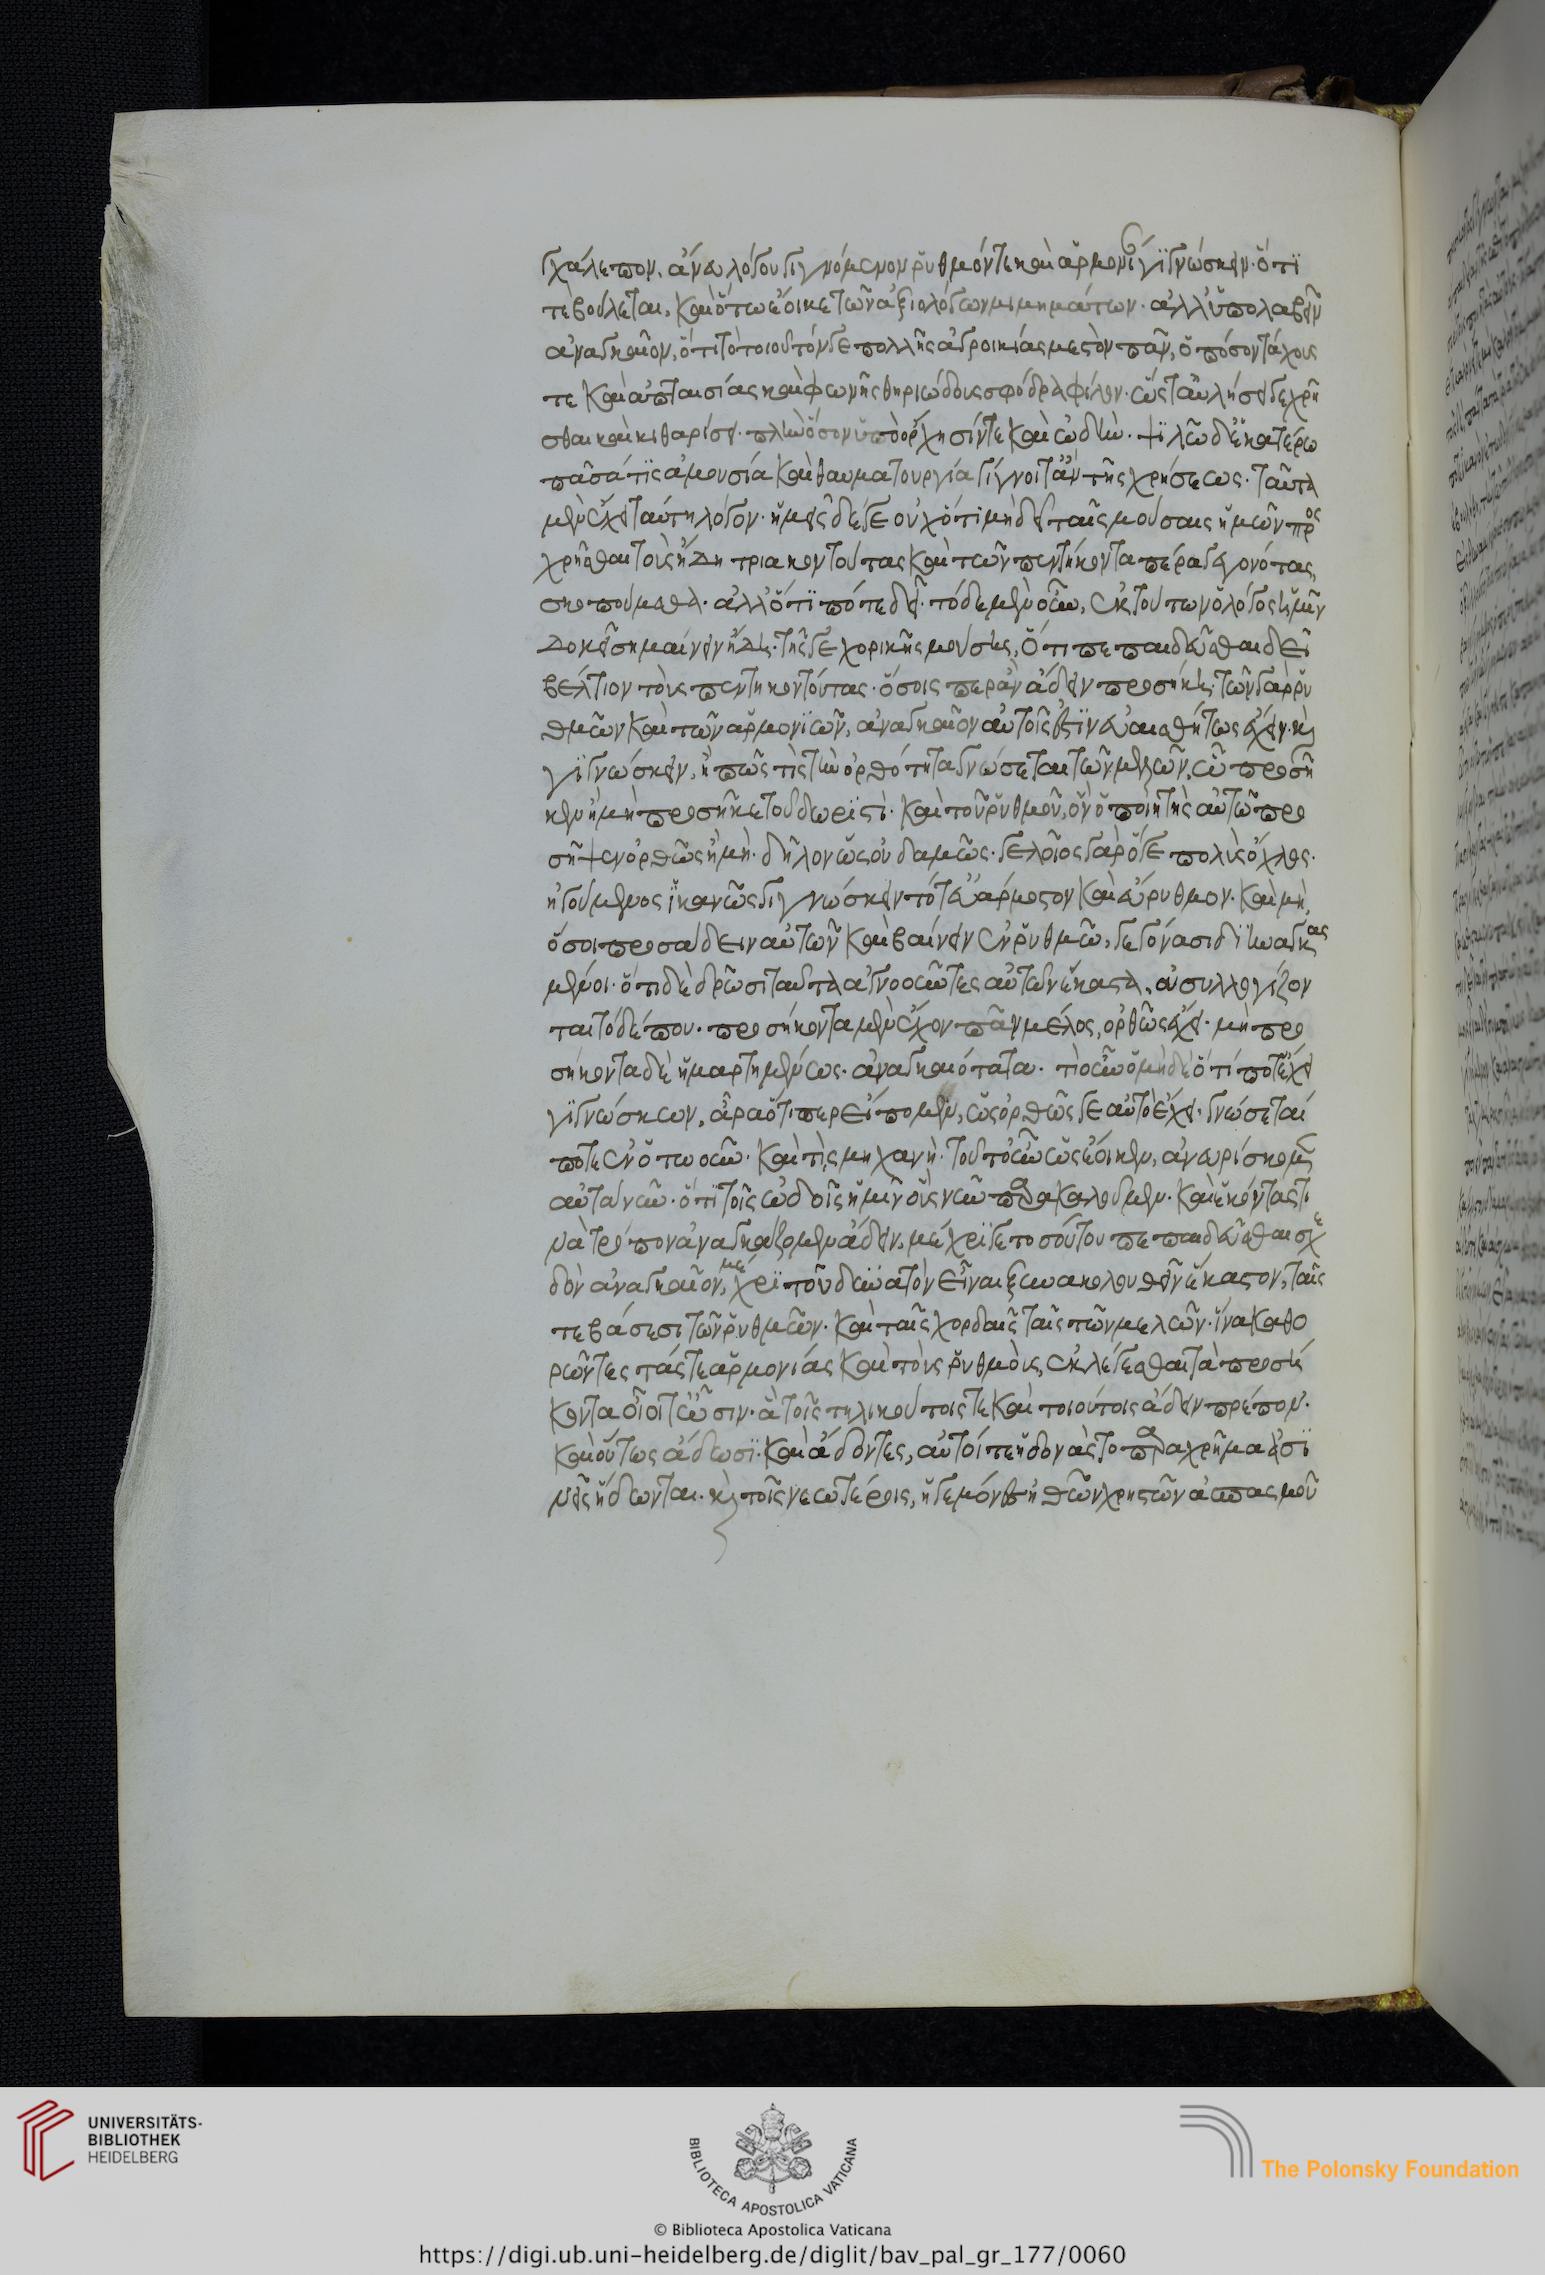 γχάλεπον, ἄνευ λόγου γιγνόμενον ῥυθμόν τε καὶ ἁρμονίαν γϊγνώσκειν· ὅτϊ
τε βούλεται, καὶ ὅτω ἔοικε τῶν ἀξιολόγων μιμημάτων· ἀλλ' ὑπολαβεῖν
ἀναγκαῖον, ὅτι τὸ τοιοῦτόν γε πολλῆς ἀγροικίας μεστὸν πᾶν, ὁπόσον τάχους
τε καὶ ἀπταισίας καὶ φωνῆς θηριώδους σφόδρα φίλον· ὥστ' αὐλήσει γε χρῆ
σθαι καὶ κιθαρίσει· πλὴν ὅσον ὑπὸ ὄρχησίν τε καὶ ὠδὴν· ψϊλῶ δ' ἑκατέρω
πᾶσά τϊς ἀμουσία καὶ θαυματουργία γίγνοιτ' ἂν τῆς χρήσεως· ταῦτα
μὲν ἔχει ταύτη λόγον· ἡμεῖς δέ γε οὐχ ὅτι μὴ δεῖ ταῖς μούσαις ἡμῶν προς
χρῆσθαι τοὺς ἤδη τριακοντούτας καὶ τῶν πεντήκοντα πέρα γεγονότας,
σκοπούμεθα· ἀλλ' ὅτϊ πότε δεῖ· τόδε μὲν οὖν, ἐκ τούτων ὁ λόγος ἡμῖν
δοκεῖ σημαίνειν ἤδη· τῆς γε χορικῆς μούσης, ὅτι πεπαιδεῦσθαι δεῖ
βέλτιον τοὺς πεντηκοντούτας· ὅσοις περ ἂν ἄδειν προσήκη· τῶν γὰρ ῥυ
θμῶν καὶ τῶν ἁρμονϊῶν, ἀναγκαῖον αὐτοῖς ἐστϊν εὐαισθήτως ἔχειν· κὶ
γϊγνώσκειν, ἢ πῶς τὶς τὴν ὀρθότητα γνώσεται τῶν μελῶν, ὧ προσῆ
κεν ἢ μὴ προσῆκε τοῦ δωρϊστὶ· καὶ τοῦ ῥυθμοῦ, ὃν ὁ ποιητὴς αὐτῶ προ
σῆψεν ὀρθῶς ἢ μή· δῆλον ὡς οὐδαμῶς· γελοῖος γὰρ ὅγε πολὺς ὄχλος·
ἡγούμενος ἱκανῶς γιγνώσκειν τό τ' εὐάρμοστον καὶ εὔρυθμον· καὶ μὴ,
ὅσοι προσάδειν αὐτῶν καὶ βαίνειν ἐν ῥυθμῶ, γεγόνασι διηναγκας
μένοι· ὅτι δὲ δρῶσι ταῦτα ἀγνοοῦντες αὐτῶν ἕκαστα, οὐ συλλογίζον
ται τό δέ που· προσήκοντα μὲν ἔχον πᾶν μέλος, ὀρθῶς ἔχει· μὴ προ
σήκοντα δὲ ἡμαρτημένως· ἀναγκαιότατα· τὶ οὖν ὁ μηδὲ ὅτί ποτ' ἔχει
γϊγνώσκων, ἆρα ὅτι περ εἴπομεν, ὡς ὀρθῶς γε αὐτὸ ἔχει· γνώσεταί
ποτε ἐν ὅτω οὖν· καὶ τὶς μηχανὴ· τοῦτ' οὖν ὡς ἔοικεν, ἀνευρίσκομεν
αὖ τανῦν· ὅτϊ τοῖς ὠδοῖς ἡμῖν οὓς νῦν παρακαλοῦμεν· καὶ ἑκόντας τι
νὰ τρόπον ἀναγκάζομεν ἄδειν, μέχρϊ γε τοσούτου πεπαιδεῦσθαι σχε
δὸν ἀναγκαῖον, μέχρϊ τοῦ δυνατὸν εἶναι ξυνακολουθεῖν ἕκαστον, ταῖς
τε βάσεσι τῶν ῥυθμῶν· καὶ ταῖς χορδαῖς ταῖς τῶν μελῶν· ἵνα καθο
ρῶντες τάς τε ἁρμονίας καὶ τοὺς ῥυθμοὺς, ἐκλέγεσθαι τὰ προσή
κοντα οἷοί τ' ὦσιν· ἃ τοῖς τηλικούτοις τε καὶ τοιούτοις ἄδειν πρέπον·
καὶ οὕτως ἄδωσϊ· καὶ ἄδοντες, αὐτοί τε ἡδονὰς το παραχρῆμα ἀσϊ
νεῖς ἥδωνται· κὶ τοῖς νεωτέροις, ἡγεμόνες ἠθῶν χρηστῶν ἀσπασμοῦ
UNIVERSITÄTS-
BIBLIOTHEK
HEIDELBERG
BIBLIOTECA APOSTOLICA VATICANA
The Polonsky Foundation
© Biblioteca Apostolica Vaticana
https://digi.ub.uni-heidelberg.de/diglit/bav_pal_gr_177/0060